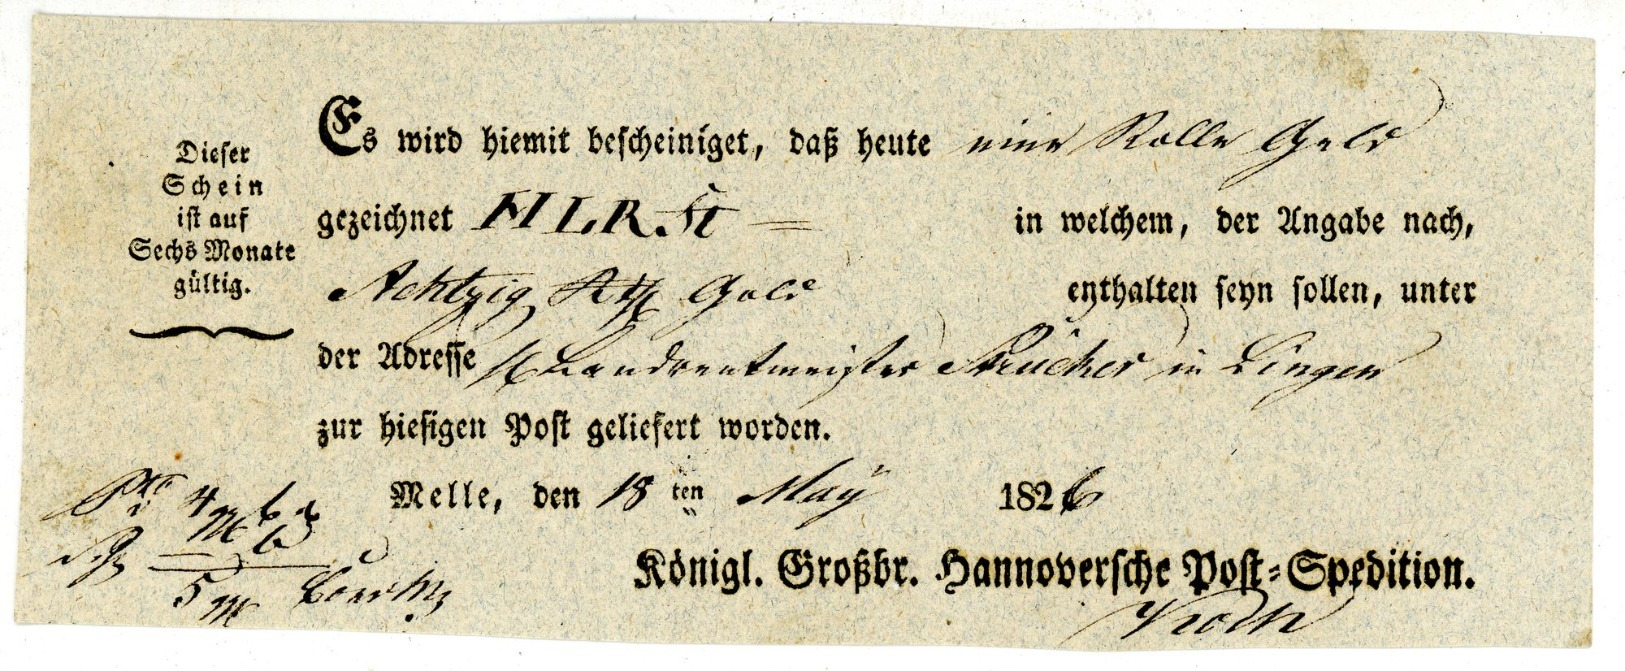 Dieser
Schein
ist auf
Sechs Monate
gültig.
Es wird hiemit bescheiniget, daß heute eine Rolle Geld
gezeichnet HLR St in welchem, der Angabe nach,
Achtzig Rth Gold enthalten seyn sollen, unter
der Adresse Landrentmeister Strücker in Lingen
zur hiesigen Post geliefert worden.
Melle, den 18 ten May 1826
Königl. Großbr. Hannoversche Post-Spedition.
4 6
5